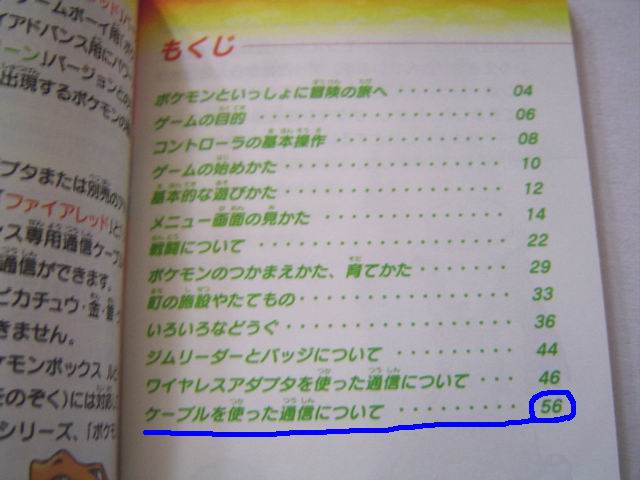 ゲームボーイ用「ポケ
イアドバンス用に「パワー
ーン」バージョンとの
出現するポケモンの
プタまたは別売のア
「ファイアレッド」と
ス専用通信ケーブ
通信ができます。
ピカチュウ・金・銀・
きません。
ケモンボックス ル
をのぞく)には対応し
シリーズ、「ポケモ
もくじ
ポケモンといっしょに冒険の旅へ ・・・・・・・・ 04
ゲームの目的 ・・・・・・・・・・・・・・・・ 06
コントローラの基本操作 ・・・・・・・・・・・ 08
ゲームの始めかた ・・・・・・・・・・・・・・ 10
基本的な遊びかた ・・・・・・・・・・・・・・ 12
メニュー画面の見かた ・・・・・・・・・・・・ 14
戦闘について ・・・・・・・・・・・・・・・・ 22
ポケモンのつかまえかた、育てかた ・・・・・・ 29
町の施設やたてもの ・・・・・・・・・・・・・ 33
いろいろなどうぐ ・・・・・・・・・・・・・・ 36
ジムリーダーとバッジについて ・・・・・・・・ 44
ワイヤレスアダプタを使った通信について ・・・ 46
ケーブルを使った通信について ・・・・・・・・ 56